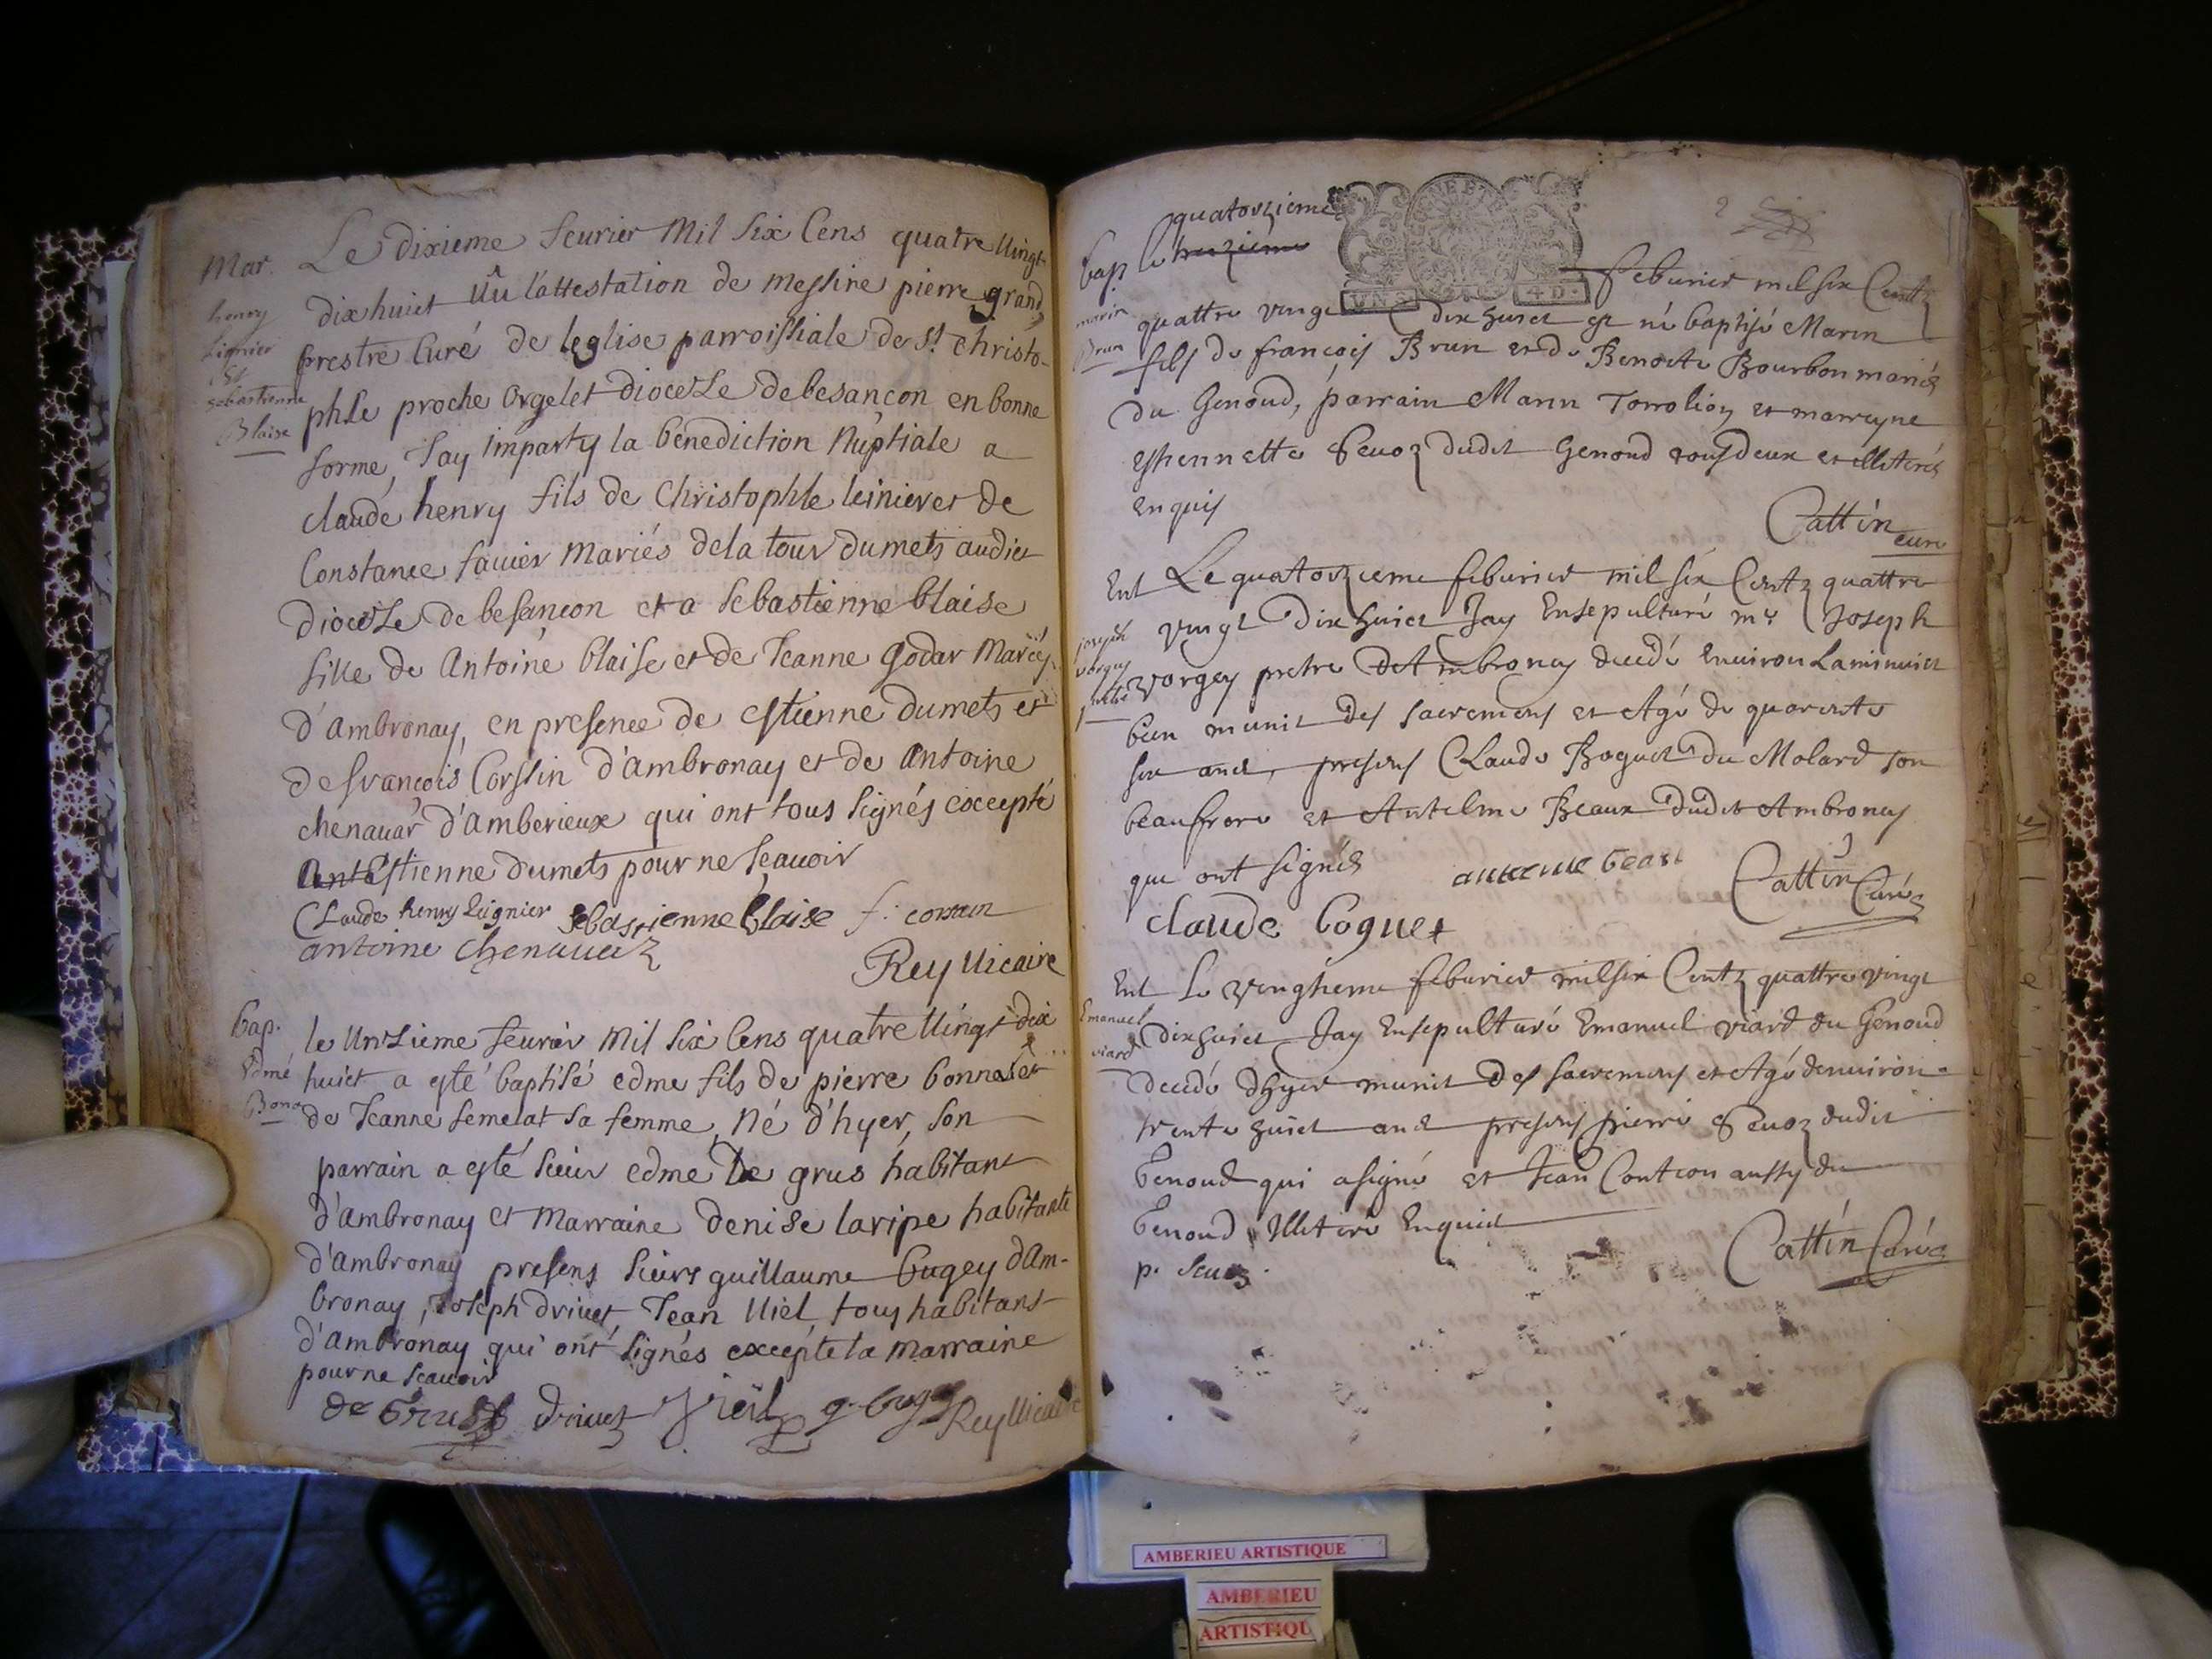 Mar.
henry
Lignier
Et
sebastienne
Blaise
Le dixieme feurier Mil Six Cens quatre Uingt
dixhuict Uû l'attestation de messire pierre grand
prestre Curé de leglise parroissiale de St. Christo-
phle proche Orgelet diocesse de besançon en bonne
forme, J'ay imparty la benediction Nuptiale a
claude henry fils de Christophle leinier et de
Constance fauier Mariés de la tour dumets audict
diocesse de besançon et a Sebastienne blaise
fille de Antoine blaise et de Jeanne godar Mariés
d'ambronay, en presence de estienne dumets et
de françois Corssin d'ambronay et de Antoine
chenauar d'amberieux qui ont tous signés excepté
Ant Estienne dumets pour ne sçauoir
Claude henry Leignier sebastienne blaise f. corssin
antoine chenauar
Rey Uicaire
bap.
Edmé
Bona
le Unzieme feurier Mil Six Cens quatre Uingt dix
huict a esté baptisé edme fils de pierre bonna et
de Jeanne semelat sa femme, Né d'hyer, son
parrain a esté sieur edme De grus habitant
d'ambronay et Marraine denise laripe habitante
d'ambronay presens sieurs guillaume bugey d'Am-
bronay, Joseph driuet, Jean Uiel, tous habitans
d'ambronay qui ont signés excepté la marraine
pour ne scauoir
de Gruss driuet Viel g. bugey Rey Uicaire
2
quatorzieme
bap le treizieme
UN S 4 D.
feburier mil six Centz
marin
Brun
quattre vingt dix huict est né baptisé Marin
fils de françois Brun et de Benoite Bourbon mariés
du Genoud, parrain Marin Torrolion et marreyne
estiennette Seuoz dudit Genoud tous deux et illiterés
enquis
Cattin curé
Ent
joseph
vorgey
pretre
Le quatorzieme feburier mil six Centz quattre
vingt Dix huict Jay Ensepulturé mr Joseph
vorgey pretre d'Ambronay decedé enuiron Laminuict
bien munit des sacremens et Agé de quarante
six ans, presens Claude Boguet du Molard son
beaufrere et Antelme Beaux dudit Ambronay
qui ont signés
anteme beaux
Cattin Curé
claude boguet
Ent
Emanuel
viard
Le vingtieme feburier mil six Centz quattre vingt
dix huict Jay Ensepulturé Emanuel viard du Genoud
decedé d'hyer munit des sacremens et Agé denuiron
trente huict ans presens pierre Seuoz dudit
Genoud qui a signé et Jean Contion aussy du
Genoud illiteré Enquis
p. Seuoz
Cattin Curé
AMBERIEU ARTISTIQUE
AMBERIEU
ARTISTIQU